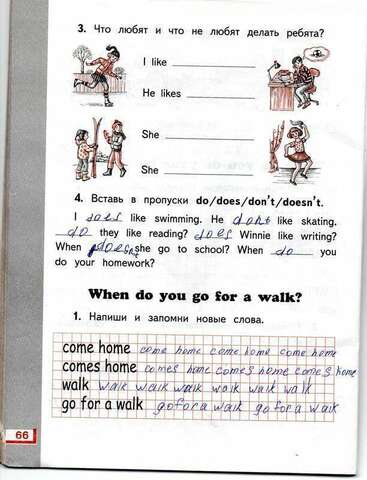 3. Что любят и что не любят делать ребята?
I like
He likes
She
She
4. Вставь в пропуски do/does/don't/doesn't.
I does like swimming. He dont like skating.
do they like reading? does Winnie like writing?
When does she go to school? When do you
do your homework?
When do you go for a walk?
1. Напиши и запомни новые слова.
come home come home come home come home
comes home comes home comes home comes home
walk walk walk walk walk walk walk
go for a walk go for a walk go for a walk
66